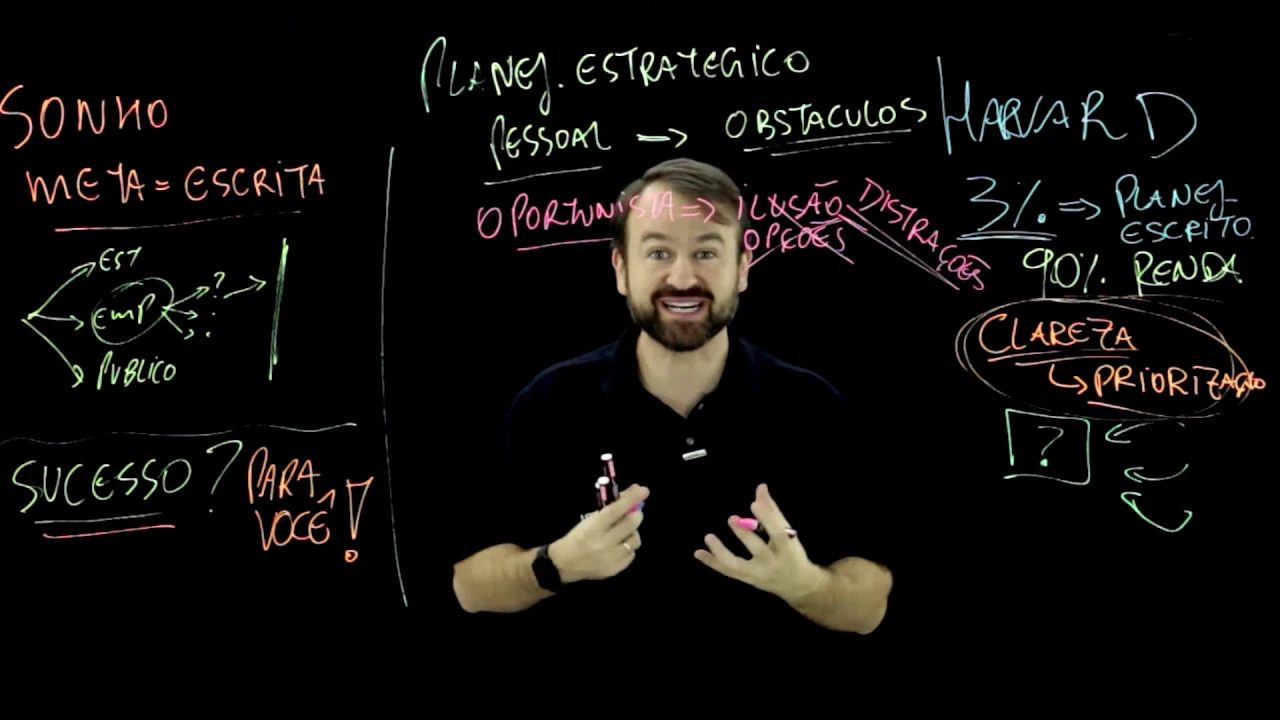 SONHO
META = ESCRITA
EST
EMP
?
PUBLICO
SUCESSO?
PARA
VOCÊ!
PLANEJ. ESTRATEGICO
PESSOAL => OBSTACULOS
OPORTUNISTA => ILUSÃO
OPÇÕES
DISTRAÇÕES
HARVARD
3% => PLANEJ
ESCRITO.
90% RENDA
CLAREZA
↳ PRIORIZAÇÃO
?